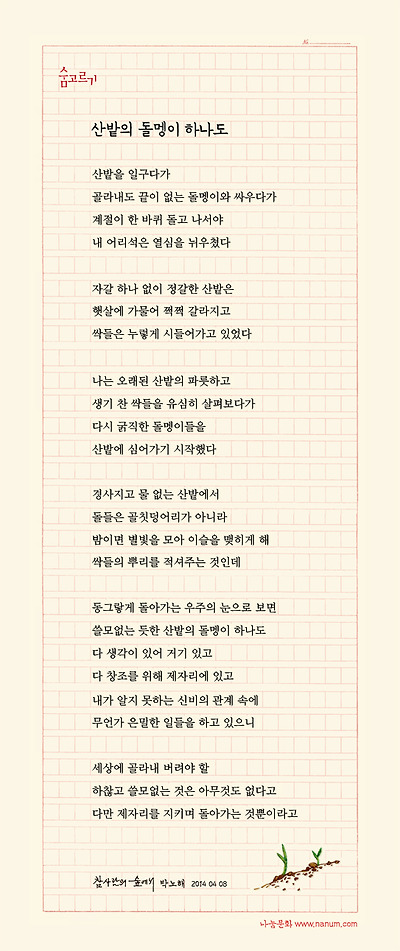 숨고르기
산밭의 돌멩이 하나도
산밭을 일구다가
골라내도 끝이 없는 돌멩이와 싸우다가
계절이 한 바퀴 돌고 나서야
내 어리석은 열심을 뉘우쳤다
자갈 하나 없이 정갈한 산밭은
햇살에 가물어 쩍쩍 갈라지고
싹들은 누렇게 시들어가고 있었다
나는 오래된 산밭의 파릇하고
생기 찬 싹들을 유심히 살펴보다가
다시 굵직한 돌멩이들을
산밭에 심어가기 시작했다
경사지고 물 없는 산밭에서
돌들은 골칫덩어리가 아니라
밤이면 별빛을 모아 이슬을 맺히게 해
싹들의 뿌리를 적셔주는 것인데
둥그렇게 돌아가는 우주의 눈으로 보면
쓸모없는 듯한 산밭의 돌멩이 하나도
다 생각이 있어 거기 있고
다 창조를 위해 제자리에 있고
내가 알지 못하는 신비의 관계 속에
무언가 은밀한 일들을 하고 있으니
세상에 골라내 버려야 할
하찮고 쓸모없는 것은 아무것도 없다고
다만 제자리를 지키며 돌아가는 것뿐이라고
참사람의 숲에서 박노해 2014 04 08
나눔문화 www.nanum.com